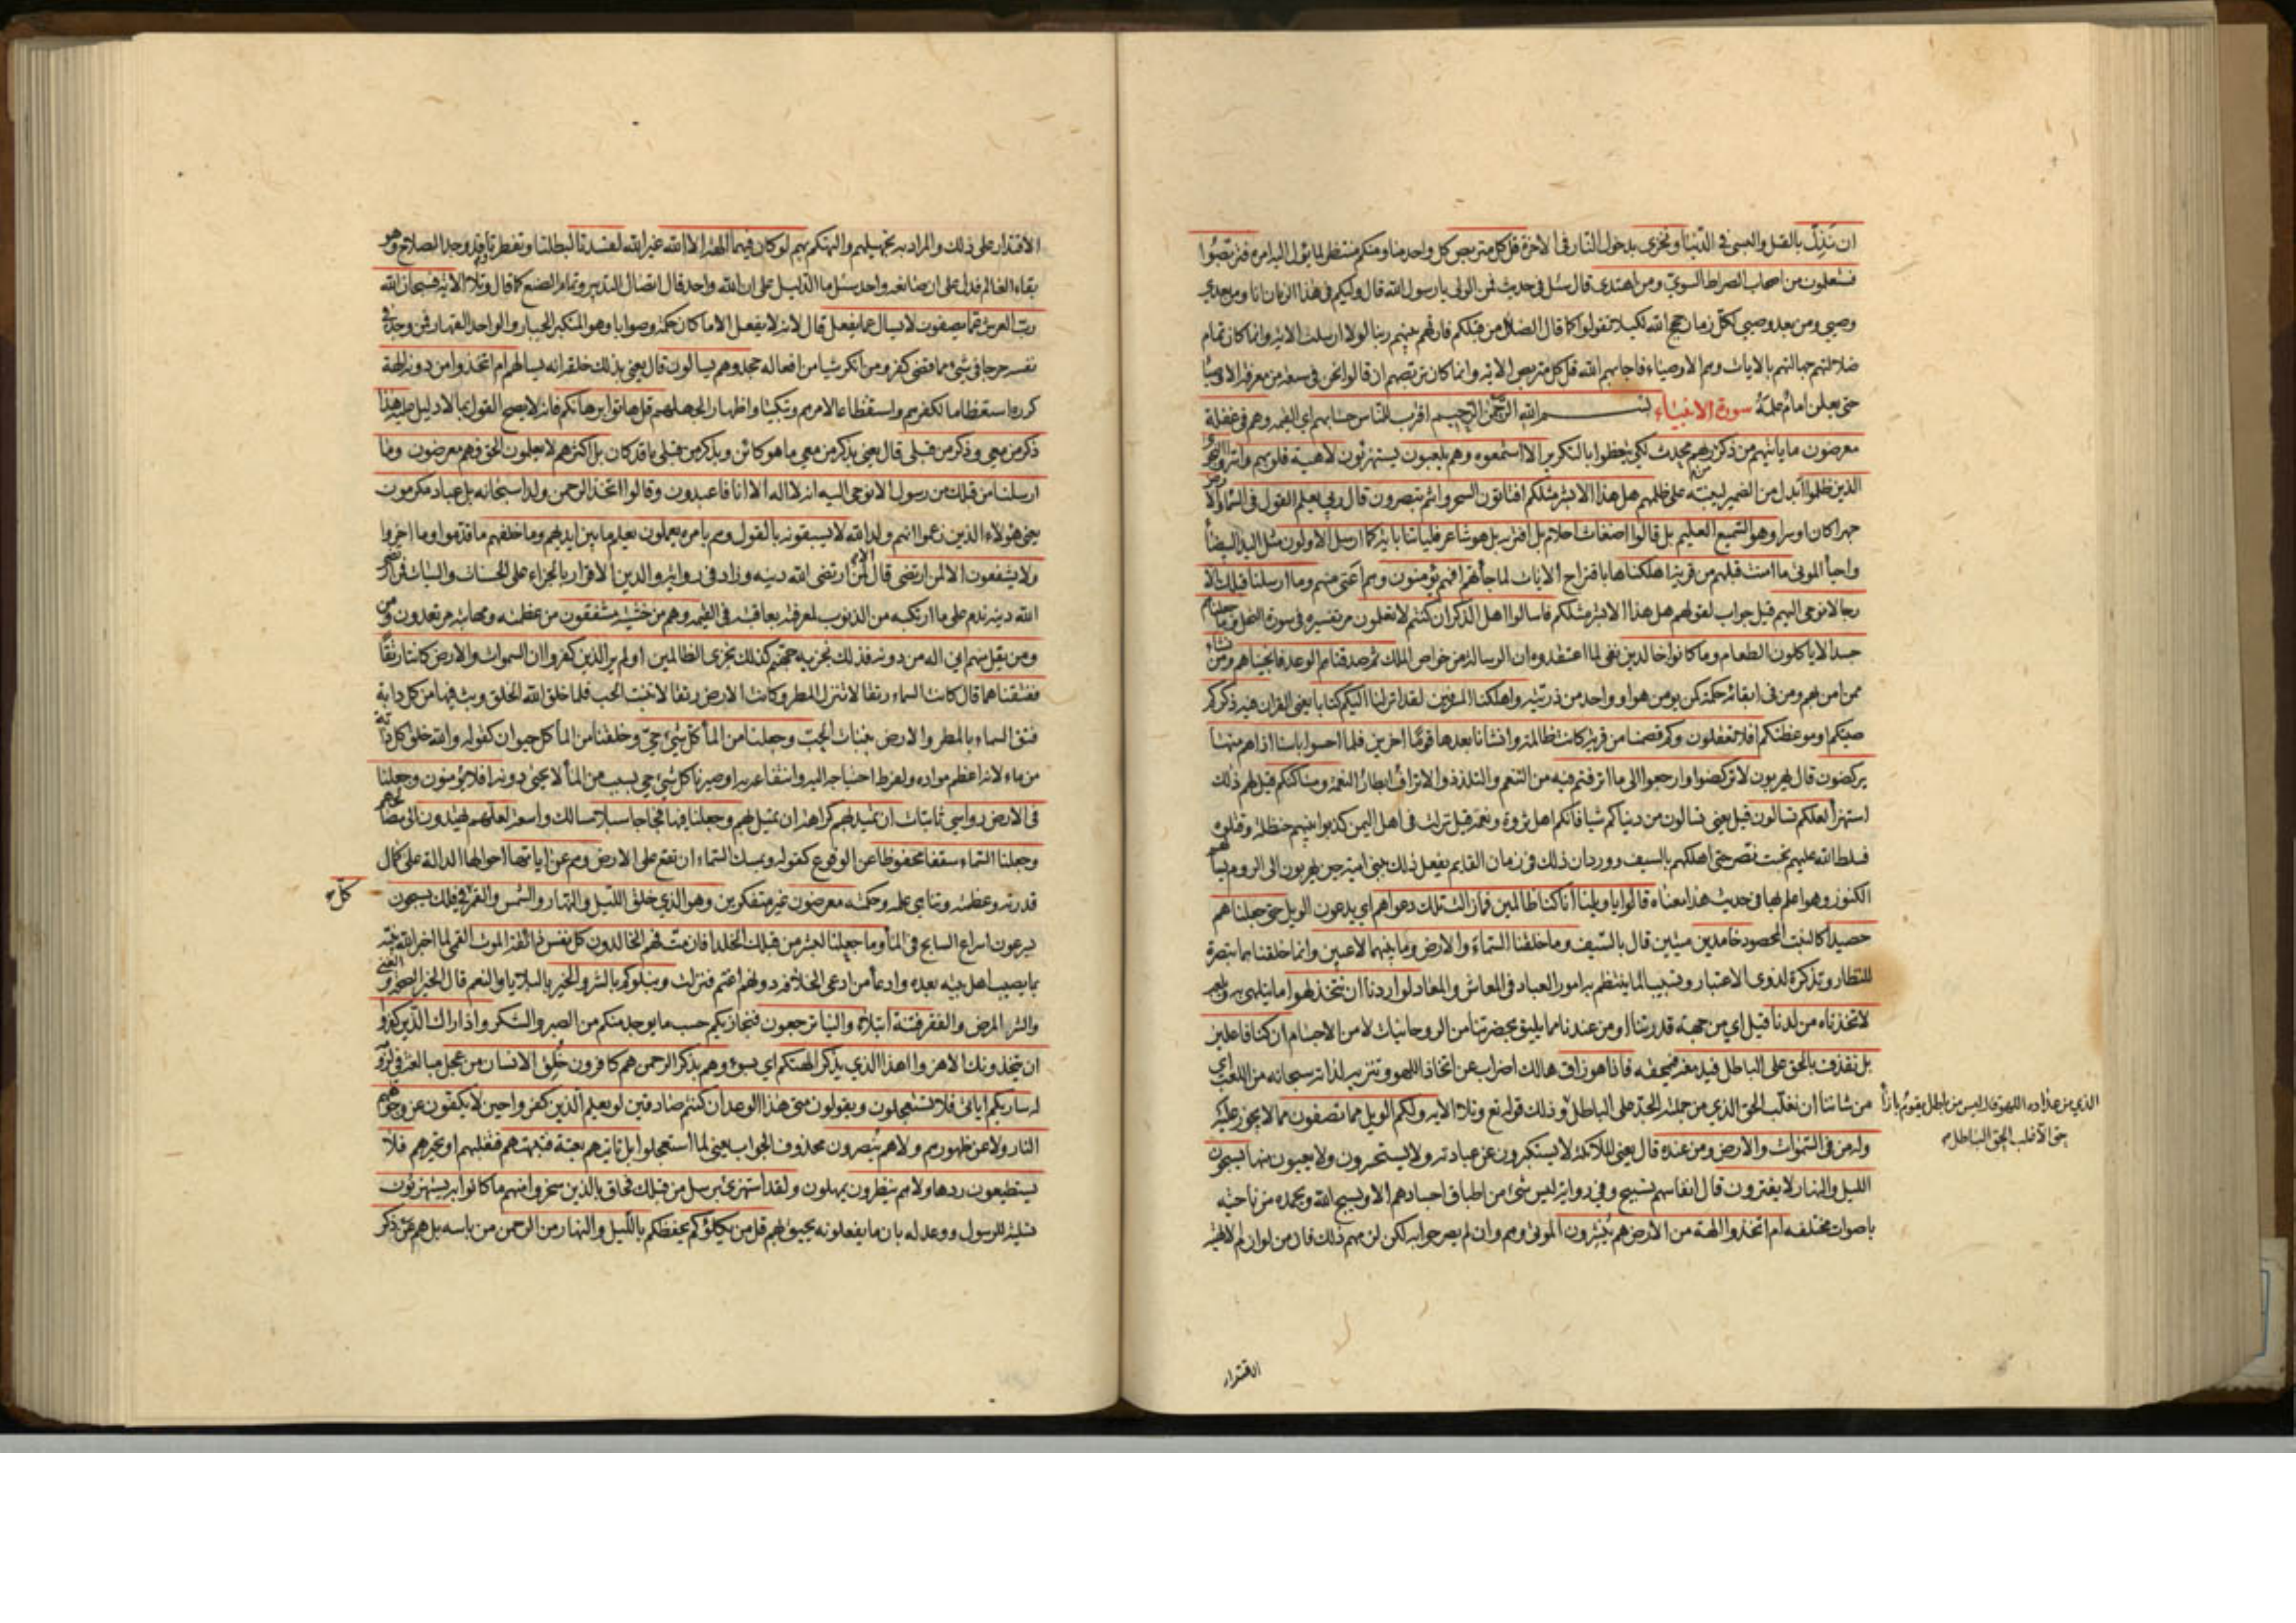 ان نذل بالقتل والسبى فى الدنيا ونخزى بدخول النار فى الآخرة قل كل متربص كل واحد منا ومنكم منتظر لما يؤل اليه امره فتربصوا
فستعلمون من اصحاب الصراط السوى ومن اهتدى قال سئل فى حديث فمن الولى يا رسول الله قال وليكم فى هذا الزمان انا ومن بعدى
وصيى ومن بعد وصيى لكل زمان حجج الله لكيلا تقولوا كما قال الضلال من قبلكم فارقهم نبيهم ربنا لولا ارسلت الاية وانما كان تمام
ضلالتهم جهالتهم بالآيات وهم الاوصياء فاجابهم الله قل كل متربص الاية وانما كان تربصهم ان قالوا نحن فى سعة من معرفة الاوصيا
حتى يعلن امام علمه سورة الانبياء بسم الله الرحمن الرحيم اقترب للناس حسابهم اى القيمه وهم فى غفلة
معرضون ما يأتيهم من ذكر من ربهم محدث لكى يتعظوا بالتكرير الا استمعوه وهم يلعبون يستهزئون لاهية قلوبهم واسروا النجوى
الذين ظلموا ابدل من الضمير لينبه على ظلمهم هل هذا الا بشر مثلكم افتاتون السحر وانتم تبصرون قال ربى يعلم القول فى السماء والارض
جهرا كان او سرا وهو السميع العليم بل قالوا اضغاث احلام بل افتريه بل هو شاعر فلياتنا باية كما ارسل الاولون مثل اليد البيضأ
واحيأ الموتى ما امنت قبلهم من قرية اهلكناها باقتراح الايات لما جأتهم افهم يؤمنون وهم اعتى منهم وما ارسلنا قبلك الا
رجالا نوحى اليهم قيل جواب لقولهم هل هذا الا بشر مثلكم فاسالوا اهل الذكر ان كنتم لا تعلمون مر تفسيره فى سورة النحل وما جعلناهم
جسدا لا ياكلون الطعام وما كانوا خالدين نفى لما اعتقدوه ان الرسالة من خواص الملك ثم صدقناهم الوعد فانجيناهم ومن نشاء
ممن امن بهم ومن فى ابقائه حكمة كمن يومن هو او واحد من ذريته واهلكنا المسرفين لقد انزلنا اليكم كتابا يعنى القران فيه ذكركم
صيتكم او موعظتكم افلا تعقلون وكم قصمنا من قرية كانت ظالمة وانشأنا بعدها قوما اخرين فلما احسوا باسنا اذا هم منها
يركضون قال يهربون لا تركضوا وارجعوا الى ما اترفتم فيه من التنعم والتلذذ والاتراف ابطار النعمة ومساكنكم قيل لهم ذلك
استهزأ لعلكم تسالون قيل يعنى تسالون من دنياكم شيا فانكم اهل ثروة ونعمة قيل نزلت فى اهل اليمن كذبوا نبيهم حنظلة وقتلوه
فسلط الله عليهم بخت نصر حتى اهلكهم بالسيف وورد ان ذلك فى زمان القايم يفعل ذلك ببنى امية حين يهربون الى الروم
الكنوز وهو اعلم بها فى حديث هذا معناه قالوا يا ويلنا انا كنا ظالمين فما زالت تلك دعواهم اى يدعون الويل حتى جعلناهم
حصيدا كالنبت المحصود خامدين ميتين قال بالسيف وما خلقنا السماء والارض وما بينهما لاعبين وانما خلقناهما تبصرة
للنظار وتذكرة لذوى الاعتبار وتسبيبا لما ينتظم به امور العباد فى المعاش والمعاد لو اردنا ان نتخذ لهوا ما يتلهى به ويلعب
لاتخذناه من لدنا قيل اى من جهة قدرتنا او من عندنا مما يليق بحضرتنا من الروحانيات لا من الاجسام ان كنا فاعلين
بل نقذف بالحق على الباطل فيدمغه فيمحقه فاذا هو زاهق هالك اضراب عن اتخاذ اللهو وتنزيه لذاته سبحانه من اللعب اى
من شاننا ان نغلب الحق الذى من جملته الجد على الباطل وذلك قوله تع وتلا الاية ولكم الويل مما تصفون مما لا يجوز عليه
وله من فى السموات والارض ومن عنده قال يعنى الملائكة لا يستكبرون عن عبادته ولا يستحسرون ولا يعيون منها يسبحون
الليل والنهار لا يفترون قال انفاسهم تسبيح وفى رواية ليس شئ من اطباق اجسادهم الا ويسبح الله ويحمده من ناحيته
باصوات مختلفه ام اتخذوا الهة من الارض هم ينشرون الموتى وهم وان لم يصرحوا به لكن لزمهم ذلك فان من لوازم الالهية
حتى لا نغلب الحق الباطل
الاقتدار
الاقتدار على ذلك والمراد به تجهيلهم والتهكم بهم لو كان فيهما الهة الا الله غير الله لفسدتا لبطلتا وتفطرتا وقد وجد الصلاح وهو
بقاء العالم فدل على ان صانعه واحد سئل ما الدليل على ان الله واحد قال اتصال التدبير وتمام الصنع كما قال وتلا الاية فسبحان الله
رب العرش عما يصفون لا يسال عما يفعل قال لانه لا يفعل الا ما كان حكمة وصوابا وهو المتكبر الجبار والواحد القهار فمن وجد فى
نفسه حرجا فى شئ مما قضى كفر ومن انكر شيا من افعاله جحد وهم يسالون قال يعنى بذلك خلقه انه يسالهم ام اتخذوا من دونه الهة
كرره استعظاما لكفرهم واستفظاعا لامرهم وتبكيتا واظهارا لجهلهم قل هاتوا برهانكم فانه لا يصح القول بما لا دليل عليه هذا
ذكر من معى وذكر من قبلى قال يعنى بذكر من معى ما هو كائن وبذكر من قبلى ما قد كان بل اكثرهم لا يعلمون الحق وهم معرضون وما
ارسلنا من قبلك من رسول الا نوحى اليه انه لا اله الا انا فاعبدون وقالوا اتخذ الرحمن ولدا سبحانه بل عباد مكرمون
يعنى هؤلاء الذين زعموا انهم ولد الله لا يسبقونه بالقول وهم بامره يعملون يعلم ما بين ايديهم وما خلفهم ما قدموا وما اخروا
ولا يشفعون الا لمن ارتضى قال الا لمن ارتضى الله دينه وزاد فى رواية والدين الاقرار بالجزاء على الحسنات والسيات فمن ارتضى
الله دينه ندم على ما ارتكبه من الذنوب لمعرفته بعاقبته فى القيمه وهم من خشيته مشفقون من عظمته ومهابته مرتعدون
ومن يقل منهم انى اله من دونه فذلك نجزيه جهنم كذلك نجزى الظالمين اولم ير الذين كفروا ان السموات والارض كانتا رتقا
ففتقناهما قال كانت السماء رتقا لا تنزل المطر وكانت الارض رتقا لا تنبت الحب فلما خلق الله الخلق وبث فيها من كل دابة
فتق السماء بالمطر والارض بنبات الحب وجعلنا من المأ كل شئ حى وخلقنا من المأ كل حيوان كقوله والله خلق كل دابة
من ماء لانه اعظم مواده ولفرط احتياجه اليه وانتفاعه به او صيرنا كل شئ حى بسبب من المأ لا يحيى دونه افلا يؤمنون وجعلنا
فى الارض رواسى ثابتات ان تميد بهم كراهة ان تميل بهم وجعلنا فيها فجاجا سبلا مسالك واسعة لعلهم يهتدون الى مصالحهم
وجعلنا السماء سقفا محفوظا عن الوقوع كقوله ويمسك السماء ان تقع على الارض وهم عن اياتها احوالها الدالة على كمال
قدرته وعظمته وتناهى علمه وحكمته معرضون غير متفكرين وهو الذى خلق الليل والنهار والشمس والقمر فى فلك يسبحون
كل
يسرعون اسراع السابح فى المأ وما جعلنا لبشر من قبلك الخلد افان مت فهم الخالدون كل نفس ذائقة الموت القمى لما اخبر الله نبيه
بما يصيب اهل بيته بعده وادعأ من ادعى الخلافه دونهم اغتم فنزلت ونبلوكم بالشر والخير بالبلايا والنعم قال الخير الصحة والغنى
والشر المرض والفقر فتنة ابتلاء والينا ترجعون فنجازيكم حسب ما يوجد منكم من الصبر والشكر واذا راك الذين كفروا
ان يتخذونك الا هزوا اهذا الذى يذكر الهتكم اى بسوء وهم بذكر الرحمن هم كافرون خلق الانسان من عجل مبالغة فى لزومه
له ساريكم اياتى فلا تستعجلون ويقولون متى هذا الوعد ان كنتم صادقين لو يعلم الذين كفروا حين لا يكفون عن وجوههم
النار ولا عن ظهورهم ولا هم ينصرون محذوف الجواب يعنى لما استعجلوا بل تاتيهم بغتة فتبهتهم فتغلبهم او تحيرهم فلا
يستطيعون ردها ولا هم ينظرون يمهلون ولقد استهزئ برسل من قبلك فحاق بالذين سخروا منهم ما كانوا به يستهزئون
تسلية للرسول ووعد له بان ما يفعلونه يحيق بهم قل من يكلؤكم يحفظكم بالليل والنهار من الرحمن من باسه بل هم عن ذكر